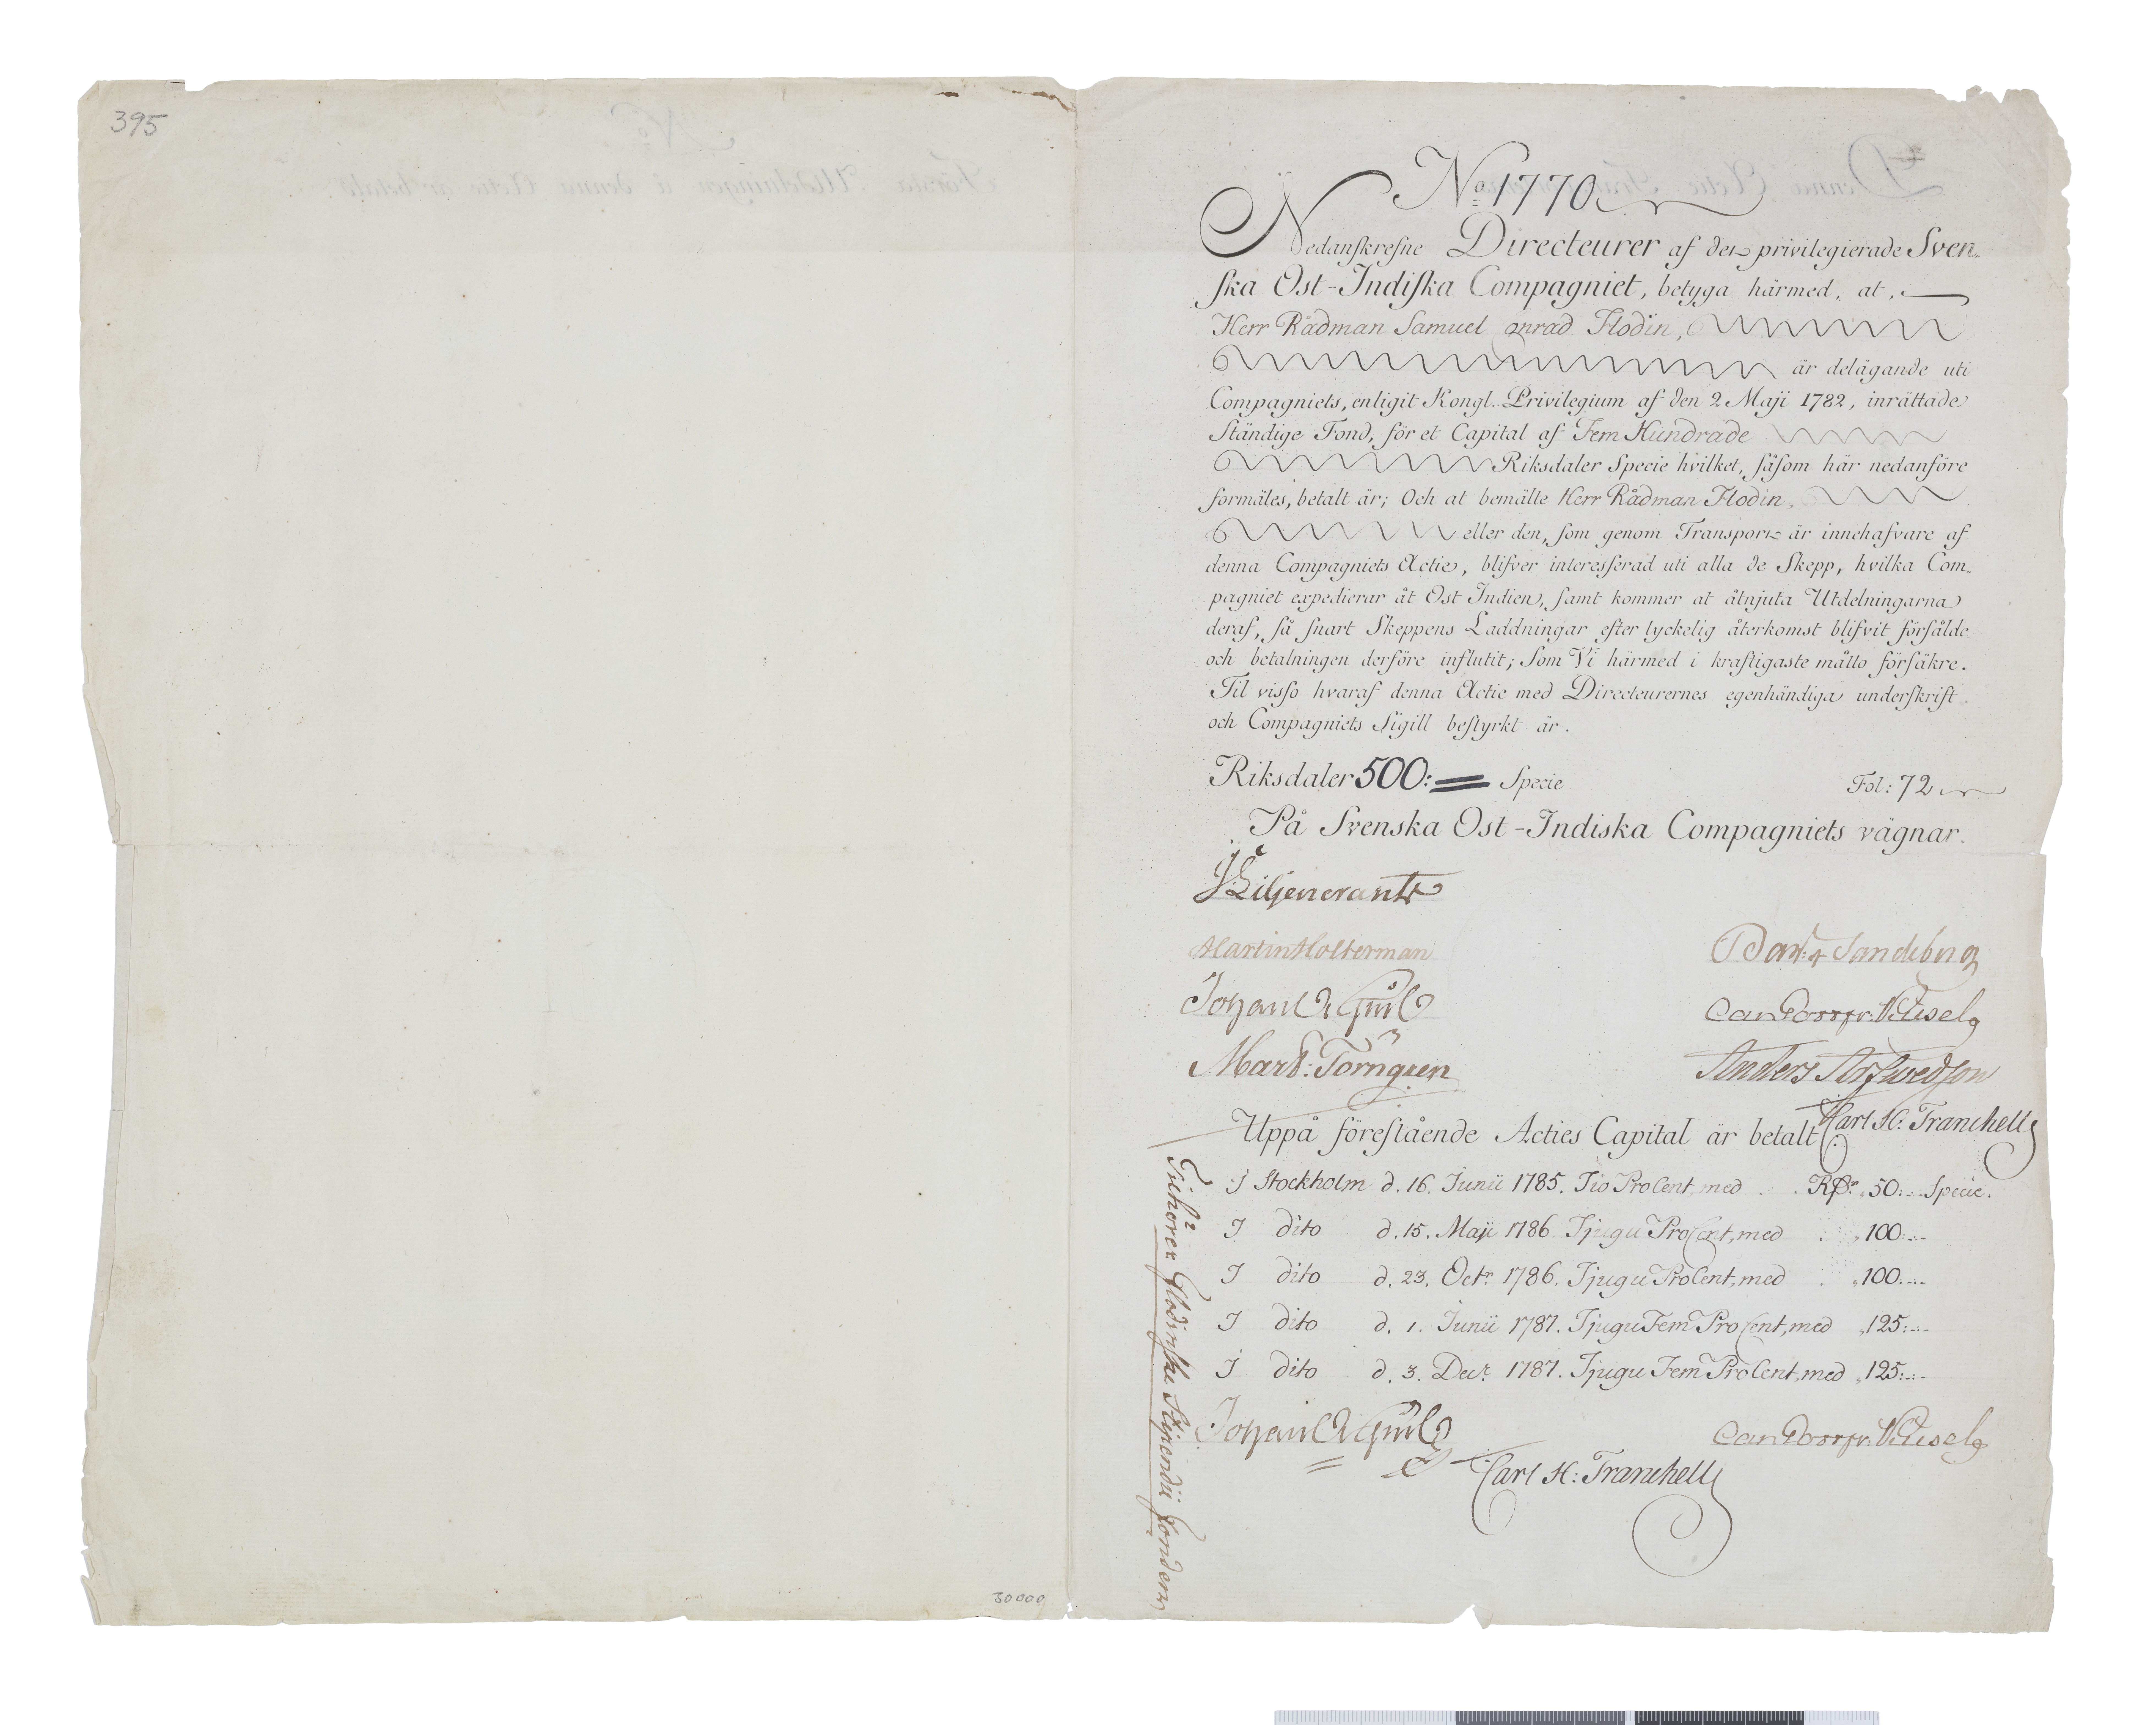 395
No 1770
Nedanskrefne Directeurer af den privilegierade Sven-
ska Ost-Indiska Compagniet, betyga härmed, at,
Herr Rådman Samuel Conrad Flodin,
är delägande uti
Compagniets, enligit Kongl. Privilegium af den 2 Maji 1782, inrättade
Ständige Fond, för et Capital af Fem Hundrade
Riksdaler Specie hvilket, såsom här nedanföre
formäles, betalt är; Och at bemälte Herr Rådman Flodin,
eller den, som genom Transport är innehafvare af
denna Compagniets Actie, blifver interesserad uti alla de Skepp, hvilka Com-
pagniet expedierar åt Ost Indien, samt kommer at åtnjuta Utdelningarna
deraf, så snart Skeppens Laddningar efter lyckelig återkomst blifvit försålde
och betalningen derföre influtit; Som Vi härmed i kraftigaste måtto försäkre.
Til visso hvaraf denna Actie med Directeurernes egenhändiga underskrift
och Compagniets Sigill bestyrkt är.
Riksdaler 500: Specie Fol: 72
På Svenska Ost-Indiska Compagniets vägnar.
J Liljencrants
Martin Holterman
Mart: Törngren Anders Arfwedson
Carl H: Tranchell
Uppå förestående Acties Capital är betalt:
I Stockholm d. 16. Junii 1785. Tio ProCent, med RDr 50:-- Specie.
I dito d. 15. Maji 1786. Tjugu ProCent, med 100:--
I dito d. 23. Octr 1786. Tjugu ProCent, med 100:--
I dito d. 1. Junii 1787. Tjugu Fem ProCent, med 125:--
I dito d. 3. Decr 1787. Tjugu Fem ProCent, med 125:--
Carl H: Tranchell
Tilhörer Flodinske Stipendii Fonden
30000